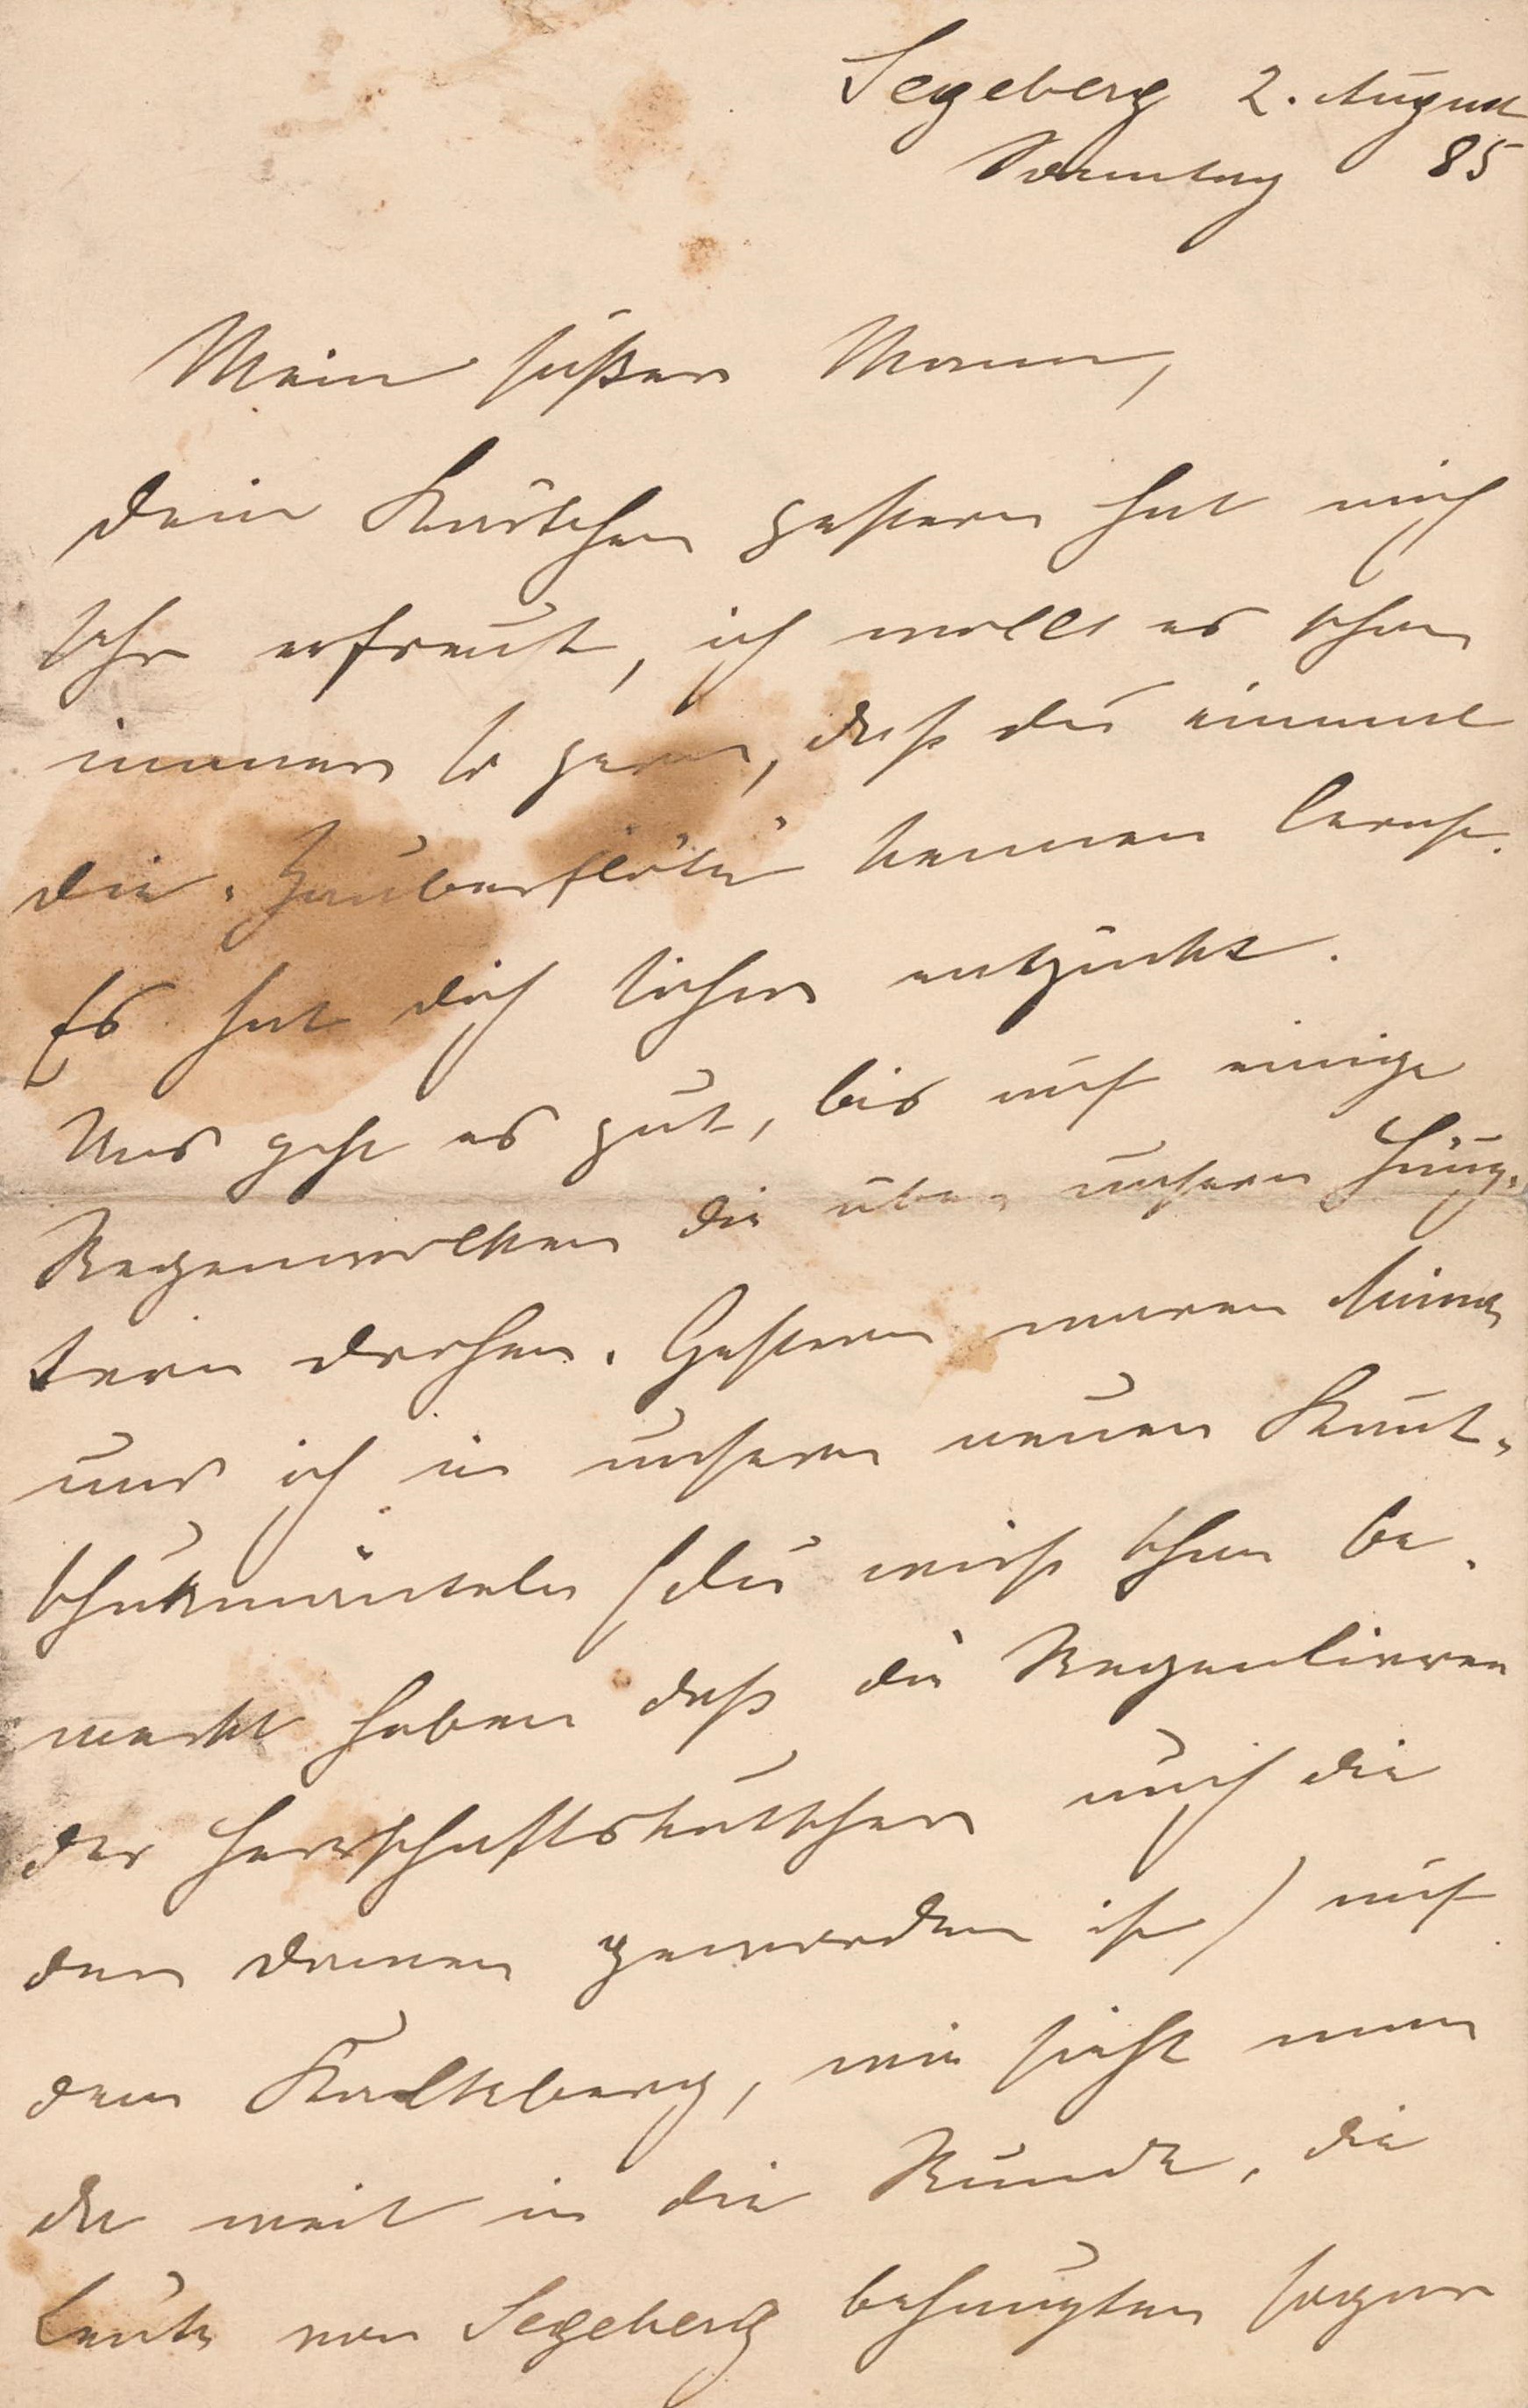 Segeberg 2. August
Sonntag 85
Mein süßer Mann,
dein Kärtchen gestern hat mich
sehr erfreut, ich wollte es schon
immer so gern, daß du einmal
die „Zauberflöte" kennen lernst.
Es hat dich sicher entzückt.
Uns geht es gut, bis auf einige
Regenwolken die über unseren Häup-
tern drohen. Gestern waren Minna
und ich in unseren neuen Kaut-
schukmänteln (du wirst schon be-
merkt haben daß die Regenlivree
der Herrschaftskutscher auch die
der Damen geworden ist) auf
dem Kalkberg, wie sieht man
da weit in die Runde, die
Leute von Segeberg behaupten sogar